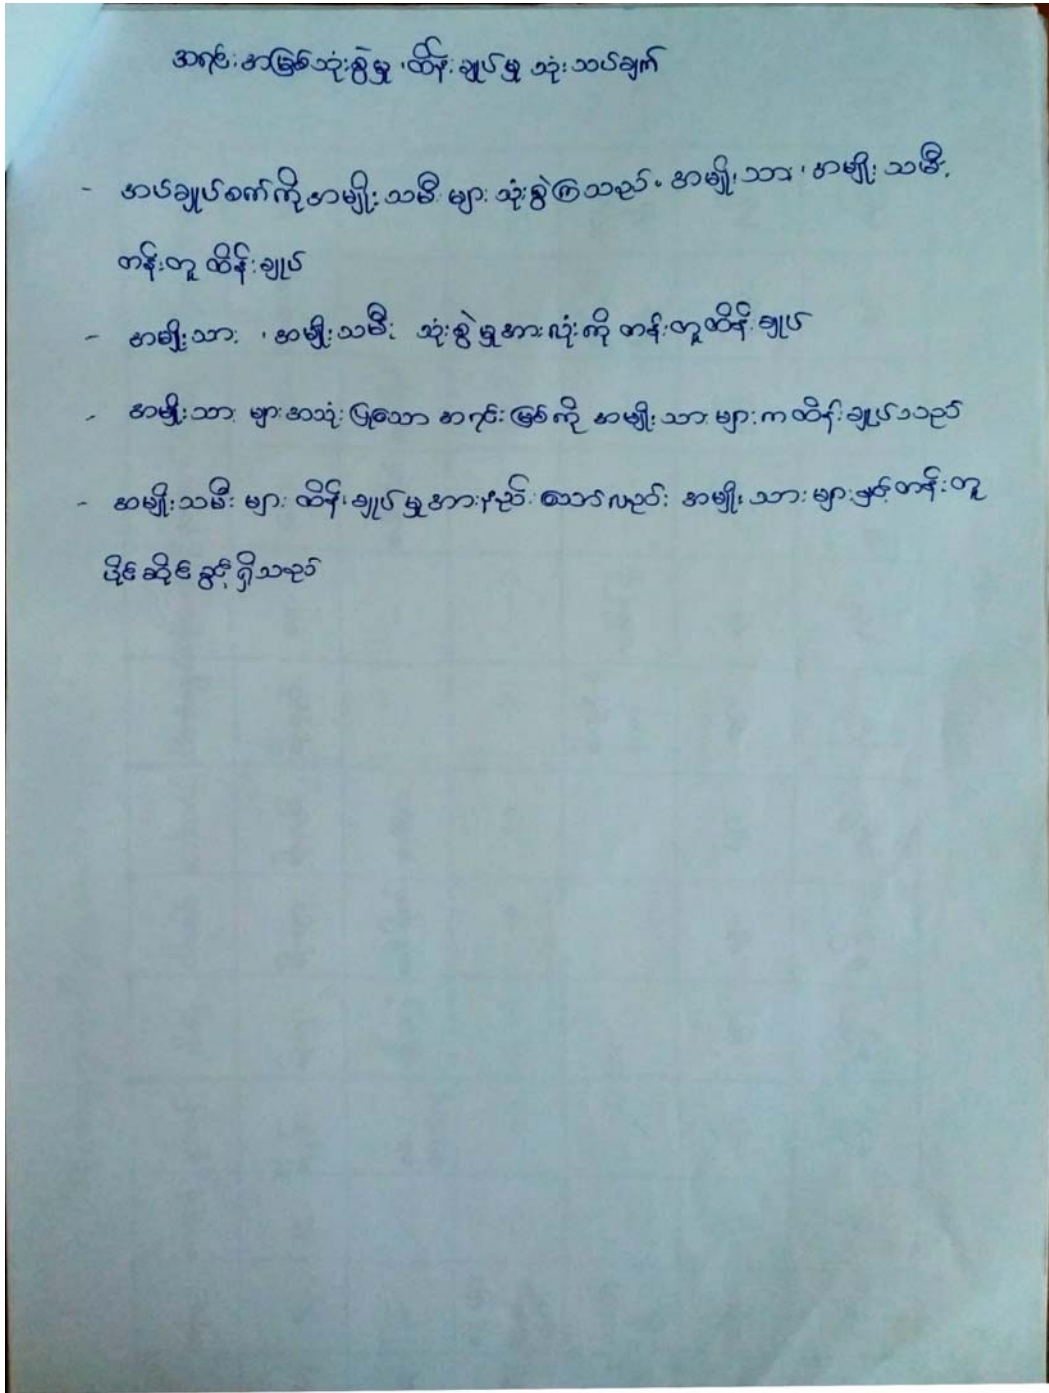 အရင်းအမြစ်သုံးစွဲမှု ၊ ထိန်းချုပ်မှု သုံးသပ်ချက်
- အပ်ချုပ်စက်ကို အမျိုးသမီးများ သုံးစွဲကြသည်။ အမျိုးသား ၊ အမျိုးသမီး
တန်းတူ ထိန်းချုပ်
- အမျိုးသား ၊ အမျိုးသမီး သုံးစွဲမှုအားလုံးကို တန်းတူထိန်းချုပ်
- အမျိုးသားများအသုံးပြုသော အရင်းမြစ်ကို အမျိုးသားများကထိန်းချုပ်သည်
- အမျိုးသမီးများ ထိန်းချုပ်မှုအားနည်းသော်လည်း အမျိုးသားများနှင့်တန်းတူ
ပိုင်ဆိုင်ခွင့်ရှိသည်